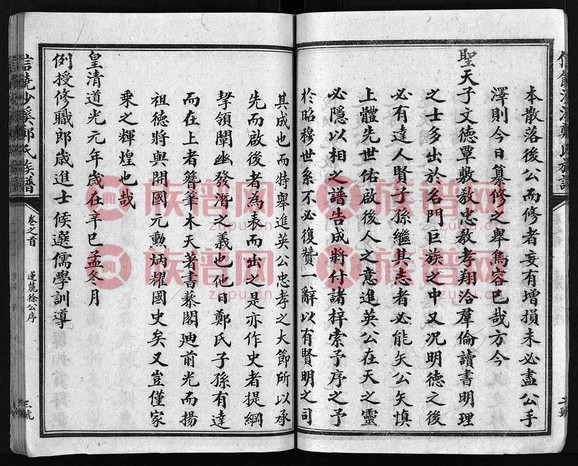 本散落後公而修者妄有增損未必盡公手
澤則今日纂修之舉焉容已哉方今
聖天子文德覃敷敎忠敎孝翔洽羣倫讀書明理
之士多出於名門巨族之中又況明德之後
必有達人賢子孫繼其志者必能矢公矢慎
上體先人佑啟後人之意進英公在天之靈
必隱以相之譜告成將付諸梓索予序之予
於昭穆世系不必復贊一辭以有賢明之司
其成也而特舉進英公忠孝之大節所以承
先而啟後者為表而出之是亦作史者提綱
挈領闡幽發潛之義也他日鄭氏子孫有達
而在上者簪筆木天著書藜閣廸前光而揚
祖德將與開國元勳炳耀國史矣又豈僅家
乘之輝煌也哉
皇清道光元年歲在辛巳孟冬月
例授修職郎歲進士候選儒學訓導
信饒沙溪鄭氏族譜
卷之首
蓮麓徐公序
三號
族谱网
zupu.cn
族谱网
zupu.cn
族谱网
zupu.cn
族谱网
zupu.cn